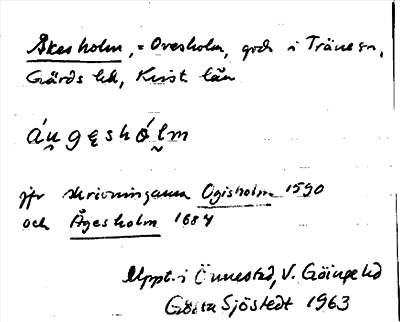 Åkesholm, = Ovesholm, gods i Träne sn,
Gärds hd, Krist. län
áu̯gęshól̬m
jfr skrivningarna Ogisholm 1590
och Ågesholm 1684
Uppt. i Önnestad, V. Göinge hd
Gösta Sjöstedt 1963